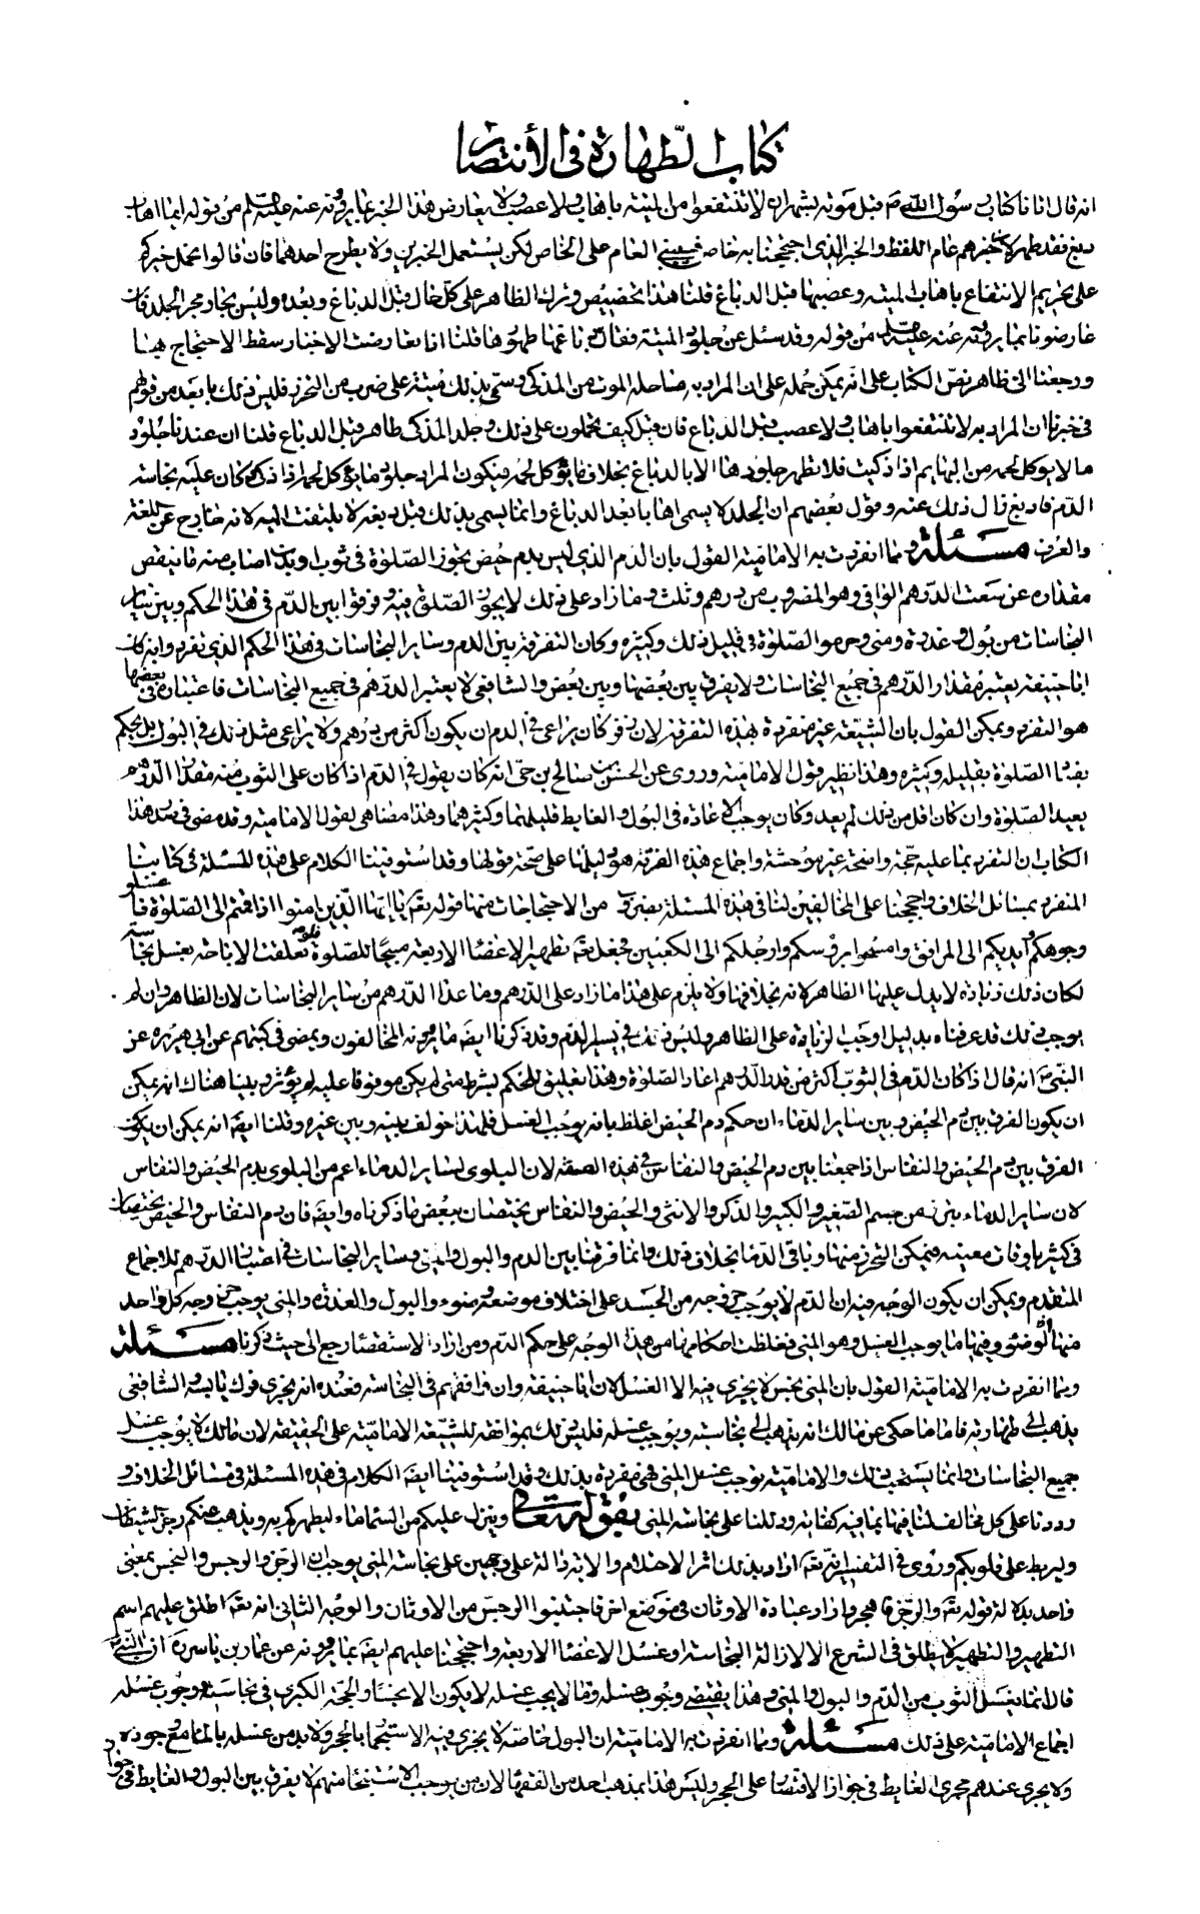 كتاب الطهارة في الانتصار
انه قال اتانا كتاب رسول الله ص قبل موته بشهر ان لا تنتفعوا من الميتة باهاب ولا عصب ولا يعارض هذا الخبر بما يروونه عنه عليه السلم من قوله ايما اهاب
دبغ فقد طهر لان خبرهم عام اللفظ والخبر الذي احتججنا به خاص فيبنى العام على الخاص لكن يستعمل الخبرين ولا يطرح احدهما فان قالوا نحمل خبركم
على تحريم الانتفاع باهاب الميتة وعصبها قبل الدباغ قلنا هذا تخصيص وترك الظاهر على كل حال قبل الدباغ وبعده وليس يجاوز مجرى الجلد فان
عارضونا بما يروونه عنه عليه السلم من قوله وقد سئل عن جلود الميتة فقال دباغها طهورها قلنا اذا تعارضت الاخبار سقط الاحتجاج بها
ورجعنا الى ظاهر نص الكتاب على انه يمكن حمله على ان المراد به ما حله الموت من المذكى وسمي بذلك ميتة على ضرب من التحرز فليس ذلك بابعد من قولهم
في خبرنا ان المراد به لا تنتفعوا باهاب ولا عصب قبل الدباغ فان قيل كيف تحملون على ذلك وجلد المذكى طاهر قبل الدباغ قلنا ان عندنا جلود
ما لا يؤكل لحمه من البهايم اذا ذكيت فلا تطهر جلودها الا بالدباغ بخلاف ما يؤكل لحمه فيكون المراد جلود ما يؤكل لحمه اذا ذكي وكان عليه نجاسة
الدم فاذا دبغ زال ذلك عنه وقول بعضهم ان الجلد لا يسمى اهابا بعد الدباغ وانما يسمى بذلك قبل دبغه لا يلتفت اليه لانه خارج عن اللغة
والعرف مسئلة ومما انفردت به الامامية القول بان الدم الذي ليس بدم حيض يجوز الصلوة في ثوب او بدن اصابه منه ما ينقص
مقداره عن سعة الدرهم الوافي وهو المضروب من درهم وثلث وما زاد على ذلك لا يجوز الصلوة فيه وفرقوا بين الدم في هذا الحكم وبين ساير
النجاسات من بول وعذرة ومني وحرموا الصلوة في قليل ذلك وكثيره وكان التفرقة بين الدم وساير النجاسات في هذا الحكم الذي تفردوا به فان
ابا حنيفة يعتبر مقدار الدرهم في جميع النجاسات ولا يفرق بين بعضها وبين بعض والشافعي لا يعتبر الدرهم في جميع النجاسات فاعتباره في بعضها
هو التفرد ويمكن القول بان الشيعة غير منفردة بهذه التفرقة لان زفر كان يراعي في الدم ان يكون اكثر من درهم ولا يراعي مثل ذلك في البول بل يحكم
بفساد الصلوة بقليله وكثيره وهذا نظير قول الامامية وروى عن الحسن بن صالح بن حي انه كان يقول في الدم اذا كان على الثوب منه مقدار الدرهم
يعيد الصلوة وان كان اقل من ذلك لم يعد وكان يوجب الاعادة في البول والغايط قليلهما وكثيرهما وهذا مضاهي لقول الامامية وقد مضى في صدر هذا
الكتاب ان التفرد بما عليه حجة واضحة غير موحشة واجماع هذه الفرقة هو دليلها على صحة قولها وقد استوفينا الكلام على هذه المسئلة في كتابنا
المنفرد بمسائل الخلاف واحتججنا على المخالفين لنا في هذه المسئلة بضروب من الاحتجاجات منها قوله تعه يا ايها الذين امنوا اذا قمتم الى الصلوة فاغسلوا
وجوهكم وايديكم الى المرافق وامسحوا برؤسكم وارجلكم الى الكعبين فجعل تعه تطهير الاعضاء الاربعة مبيحا للصلوة فلو تعلقت الاباحة بغسل نجاسة
لكان ذلك زيادة لا يدل عليها الظاهر لانه بخلافها ولا يلزم على هذا ما زاد على الدرهم وما عدا الدرهم من ساير النجاسات لان الظاهر وان لم
يوجب ذلك فقد عرفناه بدليل اوجب الزيادة على الظاهر وليس ذلك في يسير الدم وقد ذكرنا ايضه ما يرويه المخالفون ويمضى في كتبهم عن ابي هريرة عن
النبي ص انه قال اذا كان الدم في الثوب اكثر من قدر الدرهم اعاد الصلوة وهذا تعليق للحكم بشرط متى لم يكن موقوفا عليه لم يؤثر وبينا هناك انه يمكن
ان يكون الفرق بين دم الحيض وبين ساير الدماء ان حكم دم الحيض اغلظ بانه يوجب الغسل فلهذا خولف بينه وبين غيره وقلنا ايضه انه يمكن ان يكون
الفرق بين دم الحيض والنفاس اذا جمعنا بين دم الحيض والنفاس في هذه الصفة لان البلوى لساير الدماء اعم من البلوى بدم الحيض والنفاس
لان ساير الدماء يبرز من جسم الصغير والكبير والذكر والانثى والحيض والنفاس يختصان ببعض ما ذكرناه وايضه فان دم النفاس والحيض يختصان
في كثير باوقات معينة فيمكن التحرز منها وباقي الدماء بخلاف ذلك وانما فرقنا بين الدم والبول والمني وساير النجاسات في اعتبار الدرهم للاجماع
المتقدم ويمكن ان يكون الوجه فيه ان الدم لا يوجب خروجه من الجسد على اختلاف مواضعه وضوء والبول والعذرة والمني يوجب خروجه كل واحد
منها الوضوء وفيها ما يوجب الغسل وهو المني فغلظت احكامها من هذا الوجه على حكم الدم ومن اراد الاستقصاء رجع الى حيث ذكرنا مسئلة
ومما انفردت به الامامية القول بان المني نجس لا يجزي فيه الا الغسل لان ابا حنيفة وان وافقهم في النجاسة فعنده انه يجزي فرك يابسه والشافعي
يذهب الى طهارته فاما ما حكي عن مالك انه يذهب الى نجاسته ويوجب غسله فليس ذلك بموافقة للشيعة الامامية على الحقيقة لان مالكا لا يوجب غسل
جميع النجاسات وانما يستحب ذلك والامامية توجب غسل المني فهي منفردة بذلك وقد استوفينا ايضه الكلام في هذه المسئلة في مسائل الخلاف و
رددنا على كل مخالف لنا فيها بما فيه كفاية ودللنا على نجاسة المني بقوله تعالى وينزل عليكم من السماء ماء ليطهركم به ويذهب عنكم رجز الشيطان
وليربط على قلوبكم وروى في التفسير انه تعه اراد بذلك اثر الاحتلام والاية دالة على وجهين على نجاسة المني يوجب ان الرجز والرجس والنجس بمعنى
واحد بدلالة قوله تعه والرجز فاهجر واراد عبادة الاوثان في موضع اخر فاجتنبوا الرجس من الاوثان والوجه الثاني انه تعه اطلق عليهم اسم
التطهير والتطهير لا يطلق في الشرع الا لازالة النجاسة او غسل الاعضاء الاربعة واحتججنا عليهم ايضه بما يروونه عن عمار بن ياسر ره ان النبي ص
قال انما يغسل الثوب من الدم والبول والمني وهذا يقتضي وجوب غسله وما لا يجب غسله لا يكون الا نجسا والحجة الكبرى في نجاسته ووجوب غسله
اجماع الامامية على ذلك مسئلة ومما انفردت به الامامية ان البول خاصة لا يجزي فيه الاستنجاء بالحجر ولا بد من غسله بالماء مع وجوده
ولا يجري عندهم مجرى الغايط في جواز الاقتصار على الحجر وليس هذا بمذهب احد من الفقهاء لان من يوجب الاستنجاء منهم لا يفرق بين البول والغايط في جواز